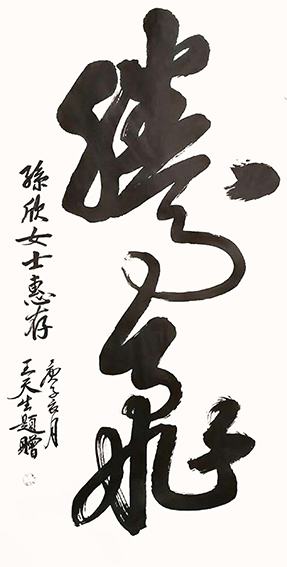 騰飛
孫欣女士惠存
庚子亥月
王天生題贈